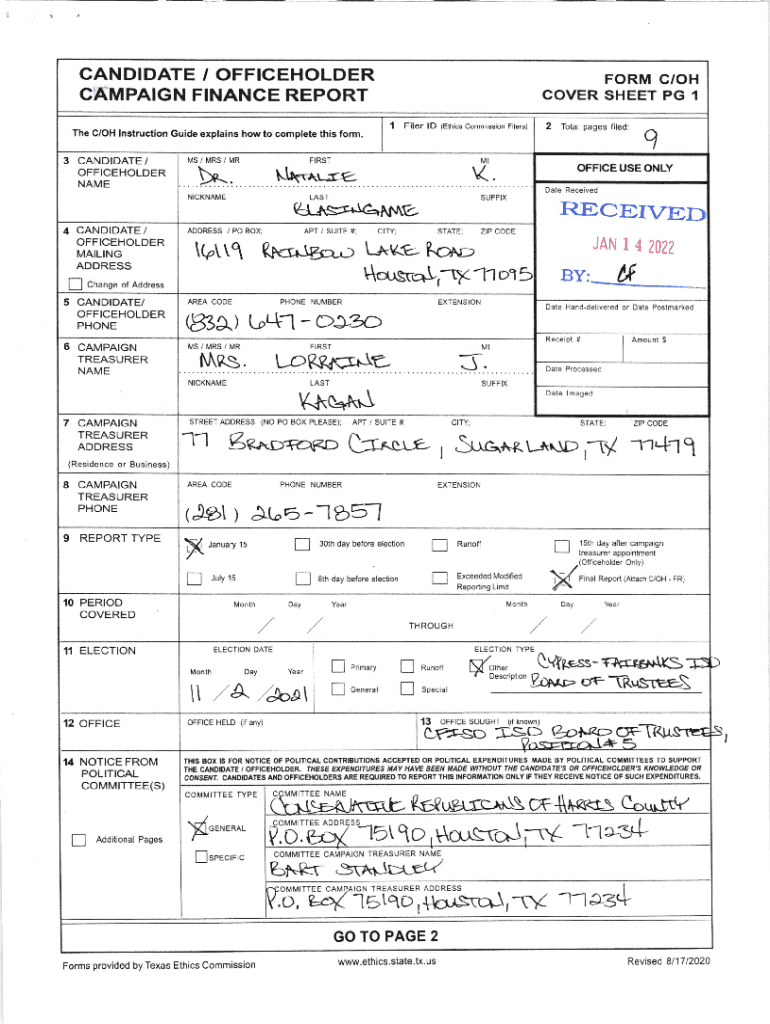 CANDIDATE / OFFICEHOLDER
CAMPAIGN FINANCE REPORT
FORM C/OH
COVER SHEET PG 1
The C/OH Instruction Guide explains how to complete this form.
1 Filer ID (Ethics Commission Filers)
2 Total pages filed:
9
3 CANDIDATE / OFFICEHOLDER NAME
MS / MRS / MR FIRST MI
DR. NATALIE K.
NICKNAME LAST SUFFIX
BLASINGAME
OFFICE USE ONLY
Date Received
RECEIVED
JAN 14 2022
BY: CF
4 CANDIDATE / OFFICEHOLDER MAILING ADDRESS
Change of Address
ADDRESS / PO BOX; APT / SUITE #; CITY; STATE; ZIP CODE
16119 RAINBOW LAKE ROAD
HOUSTON, TX 77095
5 CANDIDATE/ OFFICEHOLDER PHONE
AREA CODE PHONE NUMBER EXTENSION
(832) 647-0230
Date Hand-delivered or Date Postmarked
6 CAMPAIGN TREASURER NAME
MS / MRS / MR FIRST MI
MRS. LORRAINE J.
NICKNAME LAST SUFFIX
KAGAN
Receipt # Amount $
Date Processed
Date Imaged
7 CAMPAIGN TREASURER ADDRESS
(Residence or Business)
STREET ADDRESS (NO PO BOX PLEASE); APT / SUITE # CITY; STATE; ZIP CODE
77 BRADFORD CIRCLE, SUGARLAND, TX 77479
8 CAMPAIGN TREASURER PHONE
AREA CODE PHONE NUMBER EXTENSION
(281) 265-7857
9 REPORT TYPE
X January 15 30th day before election Runoff 15th day after campaign treasurer appointment (Officeholder Only)
July 15 8th day before election Exceeded Modified Reporting Limit X Final Report (Attach C/OH - FR)
10 PERIOD COVERED
Month Day Year Month Day Year
/ / THROUGH / /
11 ELECTION
ELECTION DATE ELECTION TYPE
Month Day Year
11 / 2 / 2021
Primary Runoff X Other Description
General Special
CYPRESS-FAIRBANKS ISD
BOARD OF TRUSTEES
12 OFFICE
OFFICE HELD (if any)
13 OFFICE SOUGHT (if known)
CFISD ISD BOARD OF TRUSTEES,
POSITION #5
14 NOTICE FROM POLITICAL COMMITTEE(S)
Additional Pages
THIS BOX IS FOR NOTICE OF POLITICAL CONTRIBUTIONS ACCEPTED OR POLITICAL EXPENDITURES MADE BY POLITICAL COMMITTEES TO SUPPORT
THE CANDIDATE / OFFICEHOLDER. THESE EXPENDITURES MAY HAVE BEEN MADE WITHOUT THE CANDIDATE'S OR OFFICEHOLDER'S KNOWLEDGE OR
CONSENT. CANDIDATES AND OFFICEHOLDERS ARE REQUIRED TO REPORT THIS INFORMATION ONLY IF THEY RECEIVE NOTICE OF SUCH EXPENDITURES.
COMMITTEE TYPE
X GENERAL
SPECIFIC
COMMITTEE NAME
CONSERVATIVE REPUBLICANS OF HARRIS COUNTY
COMMITTEE ADDRESS
P.O. BOX 75190, HOUSTON, TX 77234
COMMITTEE CAMPAIGN TREASURER NAME
BART STANDLEY
COMMITTEE CAMPAIGN TREASURER ADDRESS
P.O. BOX 75190, HOUSTON, TX 77234
GO TO PAGE 2
Forms provided by Texas Ethics Commission
www.ethics.state.tx.us
Revised 8/17/2020